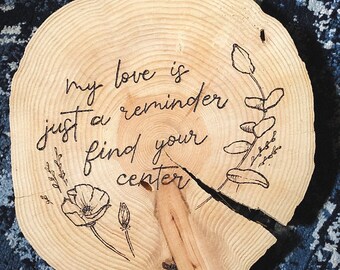 my love is
just a reminder
find your
center